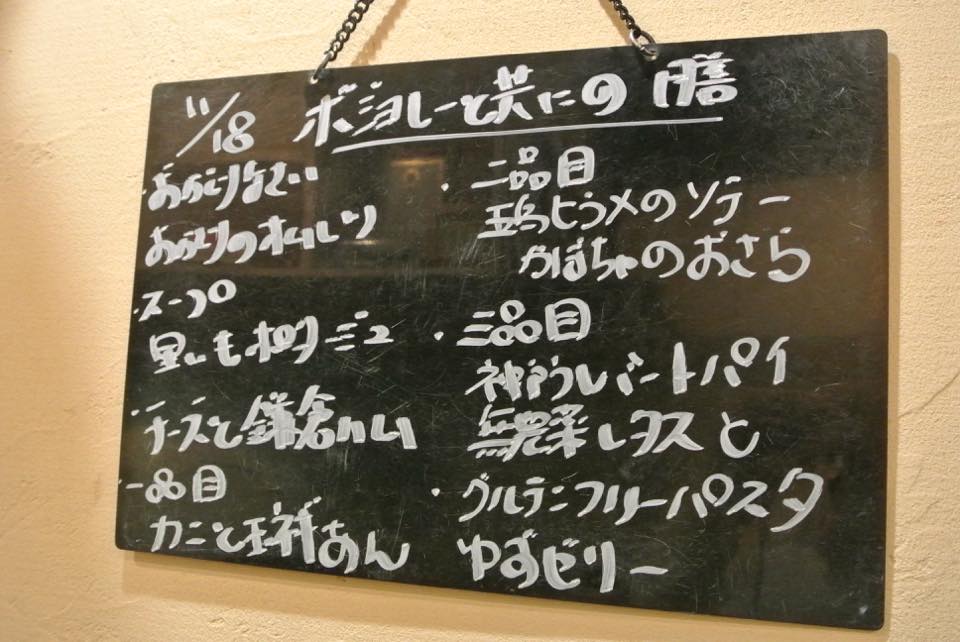 11/18 ボジョレーと共にの膳
・おかえりなさい
おかえりのオムレツ
・スープ
里いもポタージュ
チーズと鎌倉ハム
一品目
カニと あん
・二品目
五島ヒラメのソテー
かぼちゃのおさら
・三品目
パイ
無農薬レタスと
・グルテンフリーパスタ
ゆずゼリー